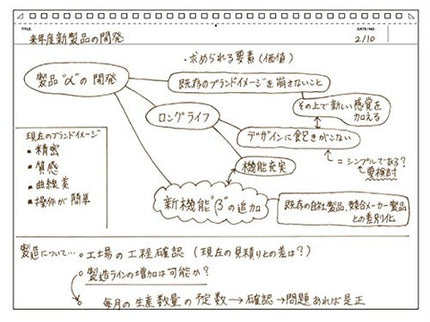 TITLE
来年度新製品の開発
DATE/NO.
2/10
・求められる要素(価値)
製品"α"の開発
既存のブランドイメージを崩さないこと
その上で新しい感覚を
加える
ロングライフ
デザインに飽きがこない
=シンプルである?
要検討
機能充実
現在のブランドイメージ
■精密
■質感
■曲線美
■操作が簡単
新機能"β"の追加
既存の自社製品、競合メーカー製品
との差別化
製造について…
工場の工程確認(現在の見積りとの差は?)
製造ラインの増加は可能か?
毎月の生産数量の予定数→確認→問題あれば是正